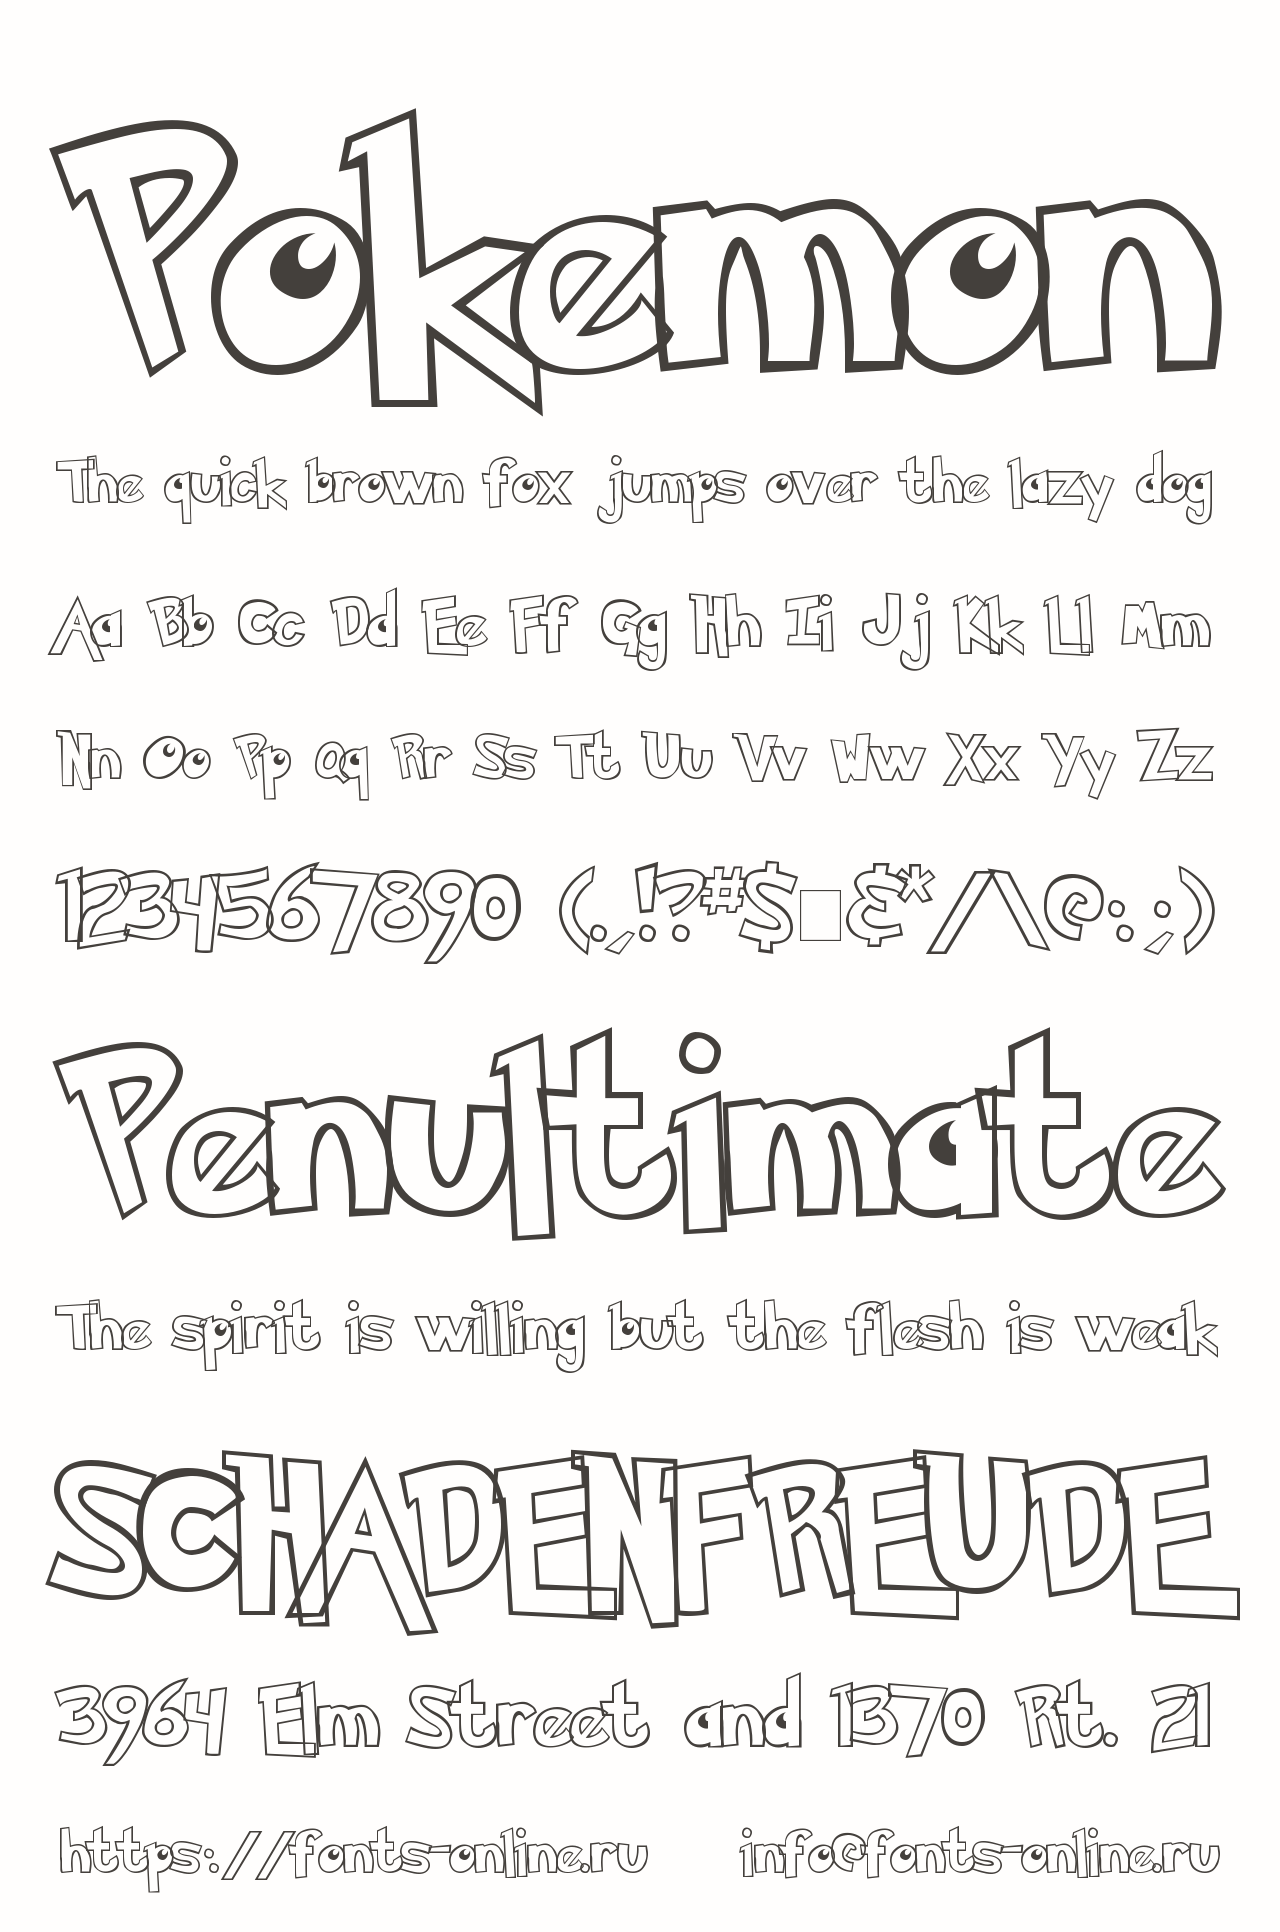 Pokemon
The quick brown fox jumps over the lazy dog
Aa Bb Cc Dd Ee Ff Gg Hh Ii Jj Kk Ll Mm
Nn Oo Pp Qq Rr Ss Tt Uu Vv Ww Xx Yy Zz
1234567890 (.,!?#$□&*/\@:;)
Penultimate
The spirit is willing but the flesh is weak
SCHADENFREUDE
3964 Elm Street and 1370 Rt. 21
https://fonts-online.ru info@fonts-online.ru